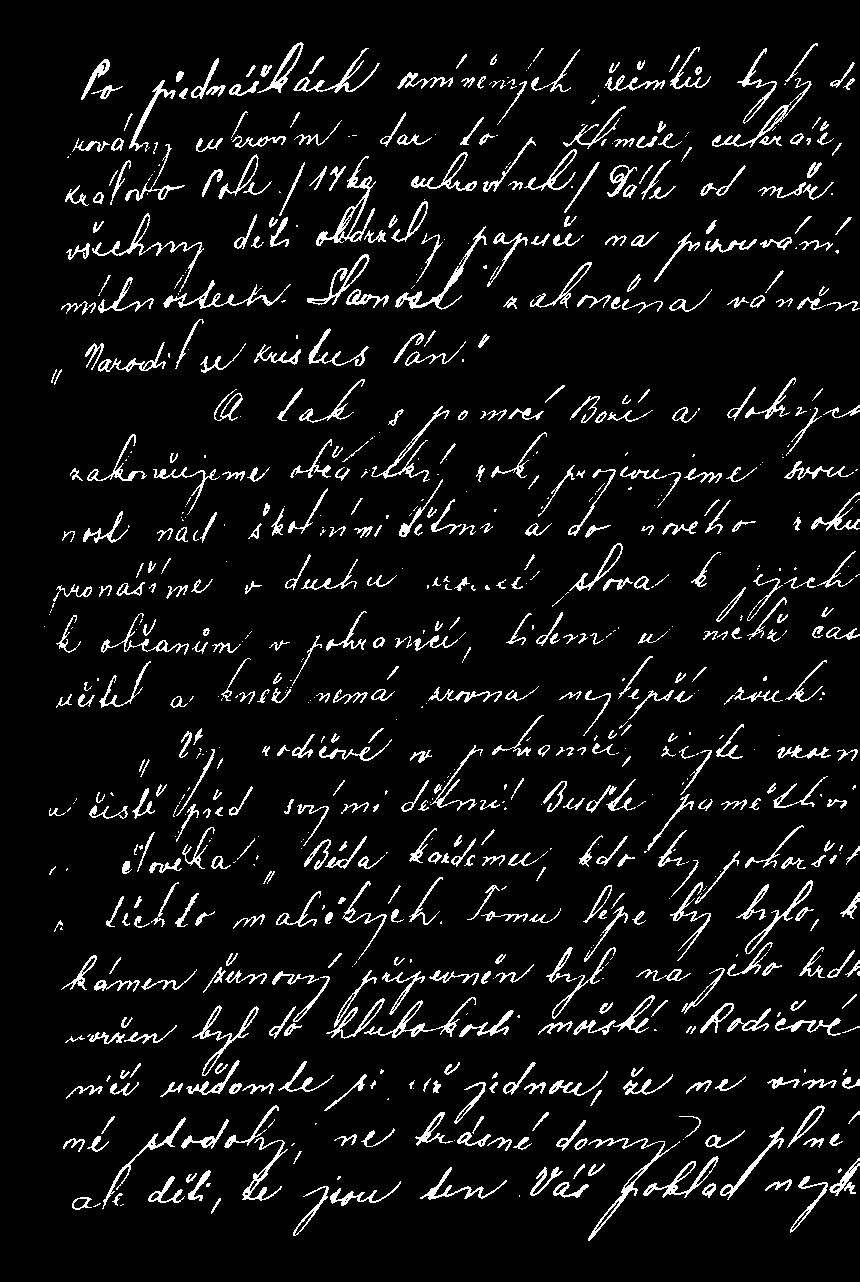 Po přednáškách zmíněných řečníků byly
rovány cukrovím - dar to p. Klimeše, cukráře,
Královo Pole. /17kg cukrovinek./ Dále od mšr.
všechny děti obdržely papuče na přezouvání.
místnostech. Slavnost zakončena
„Narodil se Kristus Pán."
A tak s pomocí Boží a dobrých
zakončujeme občanský rok, projevujeme svou
nost nad školními dětmi a do nového roku
pronášíme v duchu slova k jejich
k občanům v pohraničí, lidem u nichž
učitel a kněž nemá zrovna nejlepší zvuk:
„Vy, rodičové v pohraničí, žijte
a čistě před svými dětmi! Buďte pamětlivi
člověka: „Běda každému, kdo by
z těchto maličkých. Tomu lépe by bylo,
kámen žernový připevněn byl na jeho
uvržen byl do hlubokosti mořské." Rodičové
ničí uvědomte si už jednou, že ne vinice
né stodoly, ne krásné domy a plné
ale děti, že jsou ten Váš poklad